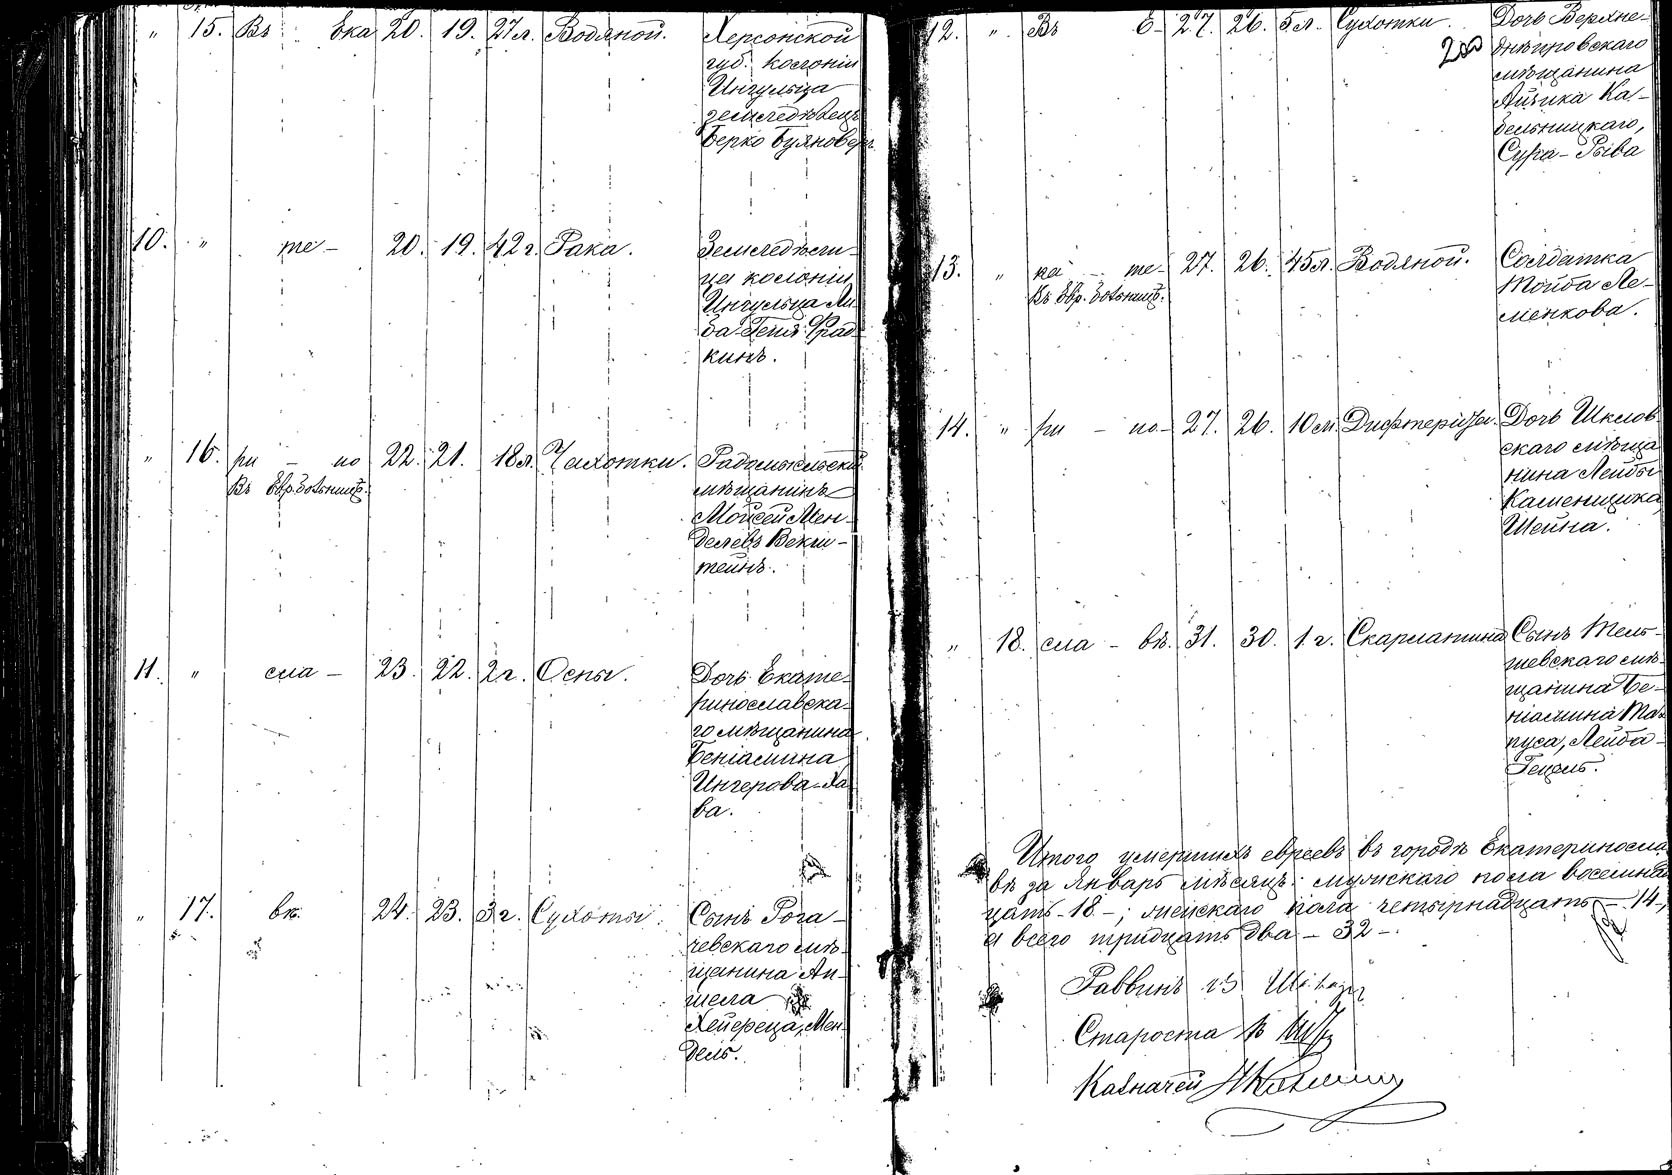 " 15. Въ Ека 20. 19. 27 л. Водяной. Херсонской
губ. колоніи
Ингульца
земледѣлецъ
Берко Буяновер
10. " те- 20. 19. 42 г. Рака. Земледѣли-
ца колоніи
Ингульца Ли-
ба-Геня Фрад-
кинъ.
" 16. ри - но 22. 21. 18 л. Чахотки. Радомысльскій
Въ Евр. больницѣ. мѣщанинъ
Мойсей Мен-
делевъ Векш-
тейнъ.
11. " сла - 23. 22. 2 г. Оспы. Дочь Екате-
ринославска-
го мѣщанина
Беніамина
Ингерова-Ха-
ва.
" 17. вѣ. 24. 23. 3 г. Сухоты. Сынъ Рога-
чевскаго мѣ-
щанина Ан-
шела
Хейфеца, Мен-
дель.
12. " Въ Е- 27. 26. 5 л. Сухотки. Дочь Верхне-
200 днѣпровскаго
мѣщанина
Айзика Ка-
бельницкаго,
Сура-Рыва
13. " ка - те- 27. 26. 45 л. Водяной. Солдатка
Въ Евр. больницѣ. Тойба Ле-
менкова.
14. " ри - но- 27. 26. 10 м. Дифтерита. Дочь Шклов-
скаго мѣща-
нина Лейбы
Каменщика,
Шейна.
" 18. сла - вѣ. 31. 30. 1 г. Скарлатина Сынъ Тель-
шевскаго мѣ-
щанина Бе-
ніамина
Лейба-
Гецель.
Итого умершихъ евреевъ въ городѣ Екатериносла-
вѣ за Январь мѣсяцъ: мужскаго пола восемнад-
цать - 18 -; женскаго пола четырнадцать - 14 -,
а всего тридцать два - 32 -.
Раввинъ
Староста
Казначей